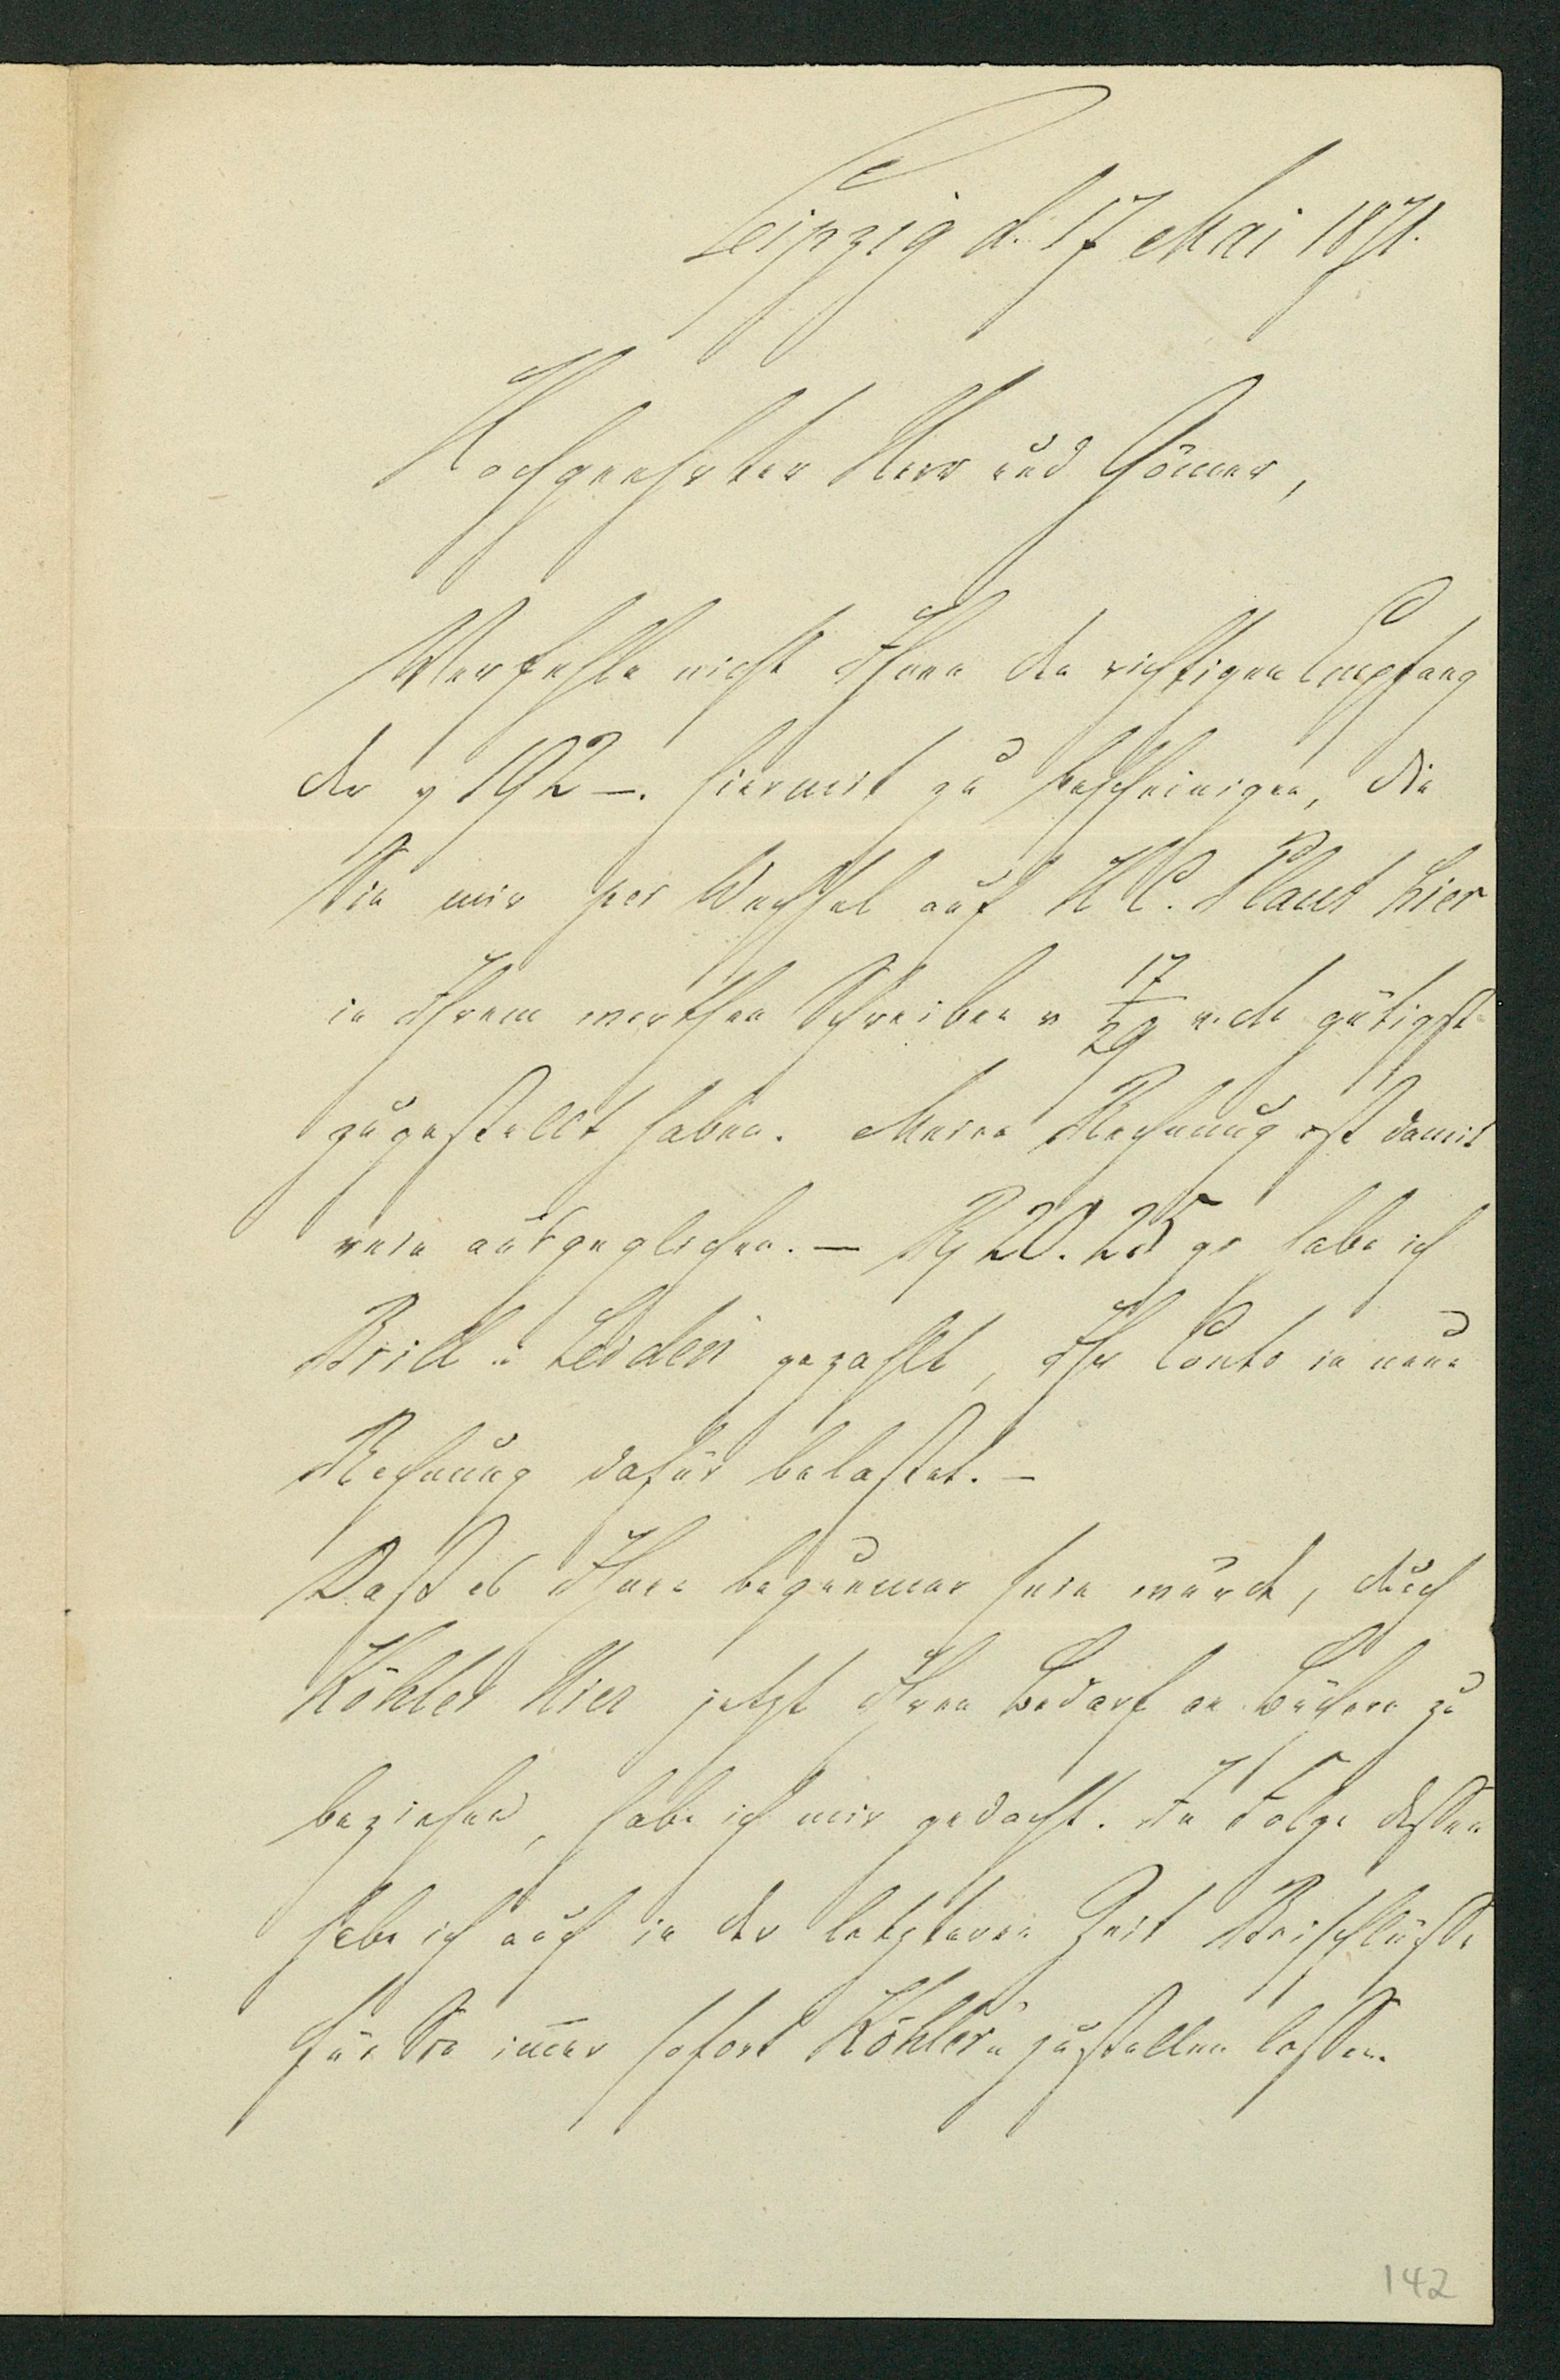 Leipzig d. 17 Mai 1871.
Hochgeehrter Herr und Gönner,
Verfehle nicht Ihnen den richtigen Empfang
der 192 –. hiermit zu bescheinigen, die
Sie mir per Wechsel auf H C. Plaut hier
in Ihrem werthen Schreiben v 17/29 gütigst
zugestellt haben. Meine Rechnung ist damit
rein ausgeglichen. — 20. 25 gr habe ich
Brill in Leiden gezahlt, Ihr Conto in neue
Rechnung dafür belastet. –
Daß es Ihnen bequemer sein würde, durch
Köhler hier jetzt Ihren Bedarf an Büchern zu
beziehen, habe ich mir gedacht. In Folge dessen
habe ich auch in der letzteren Zeit Beischlüsse
für Sie im̅er sofort Köhlern zustellen lassen.
142